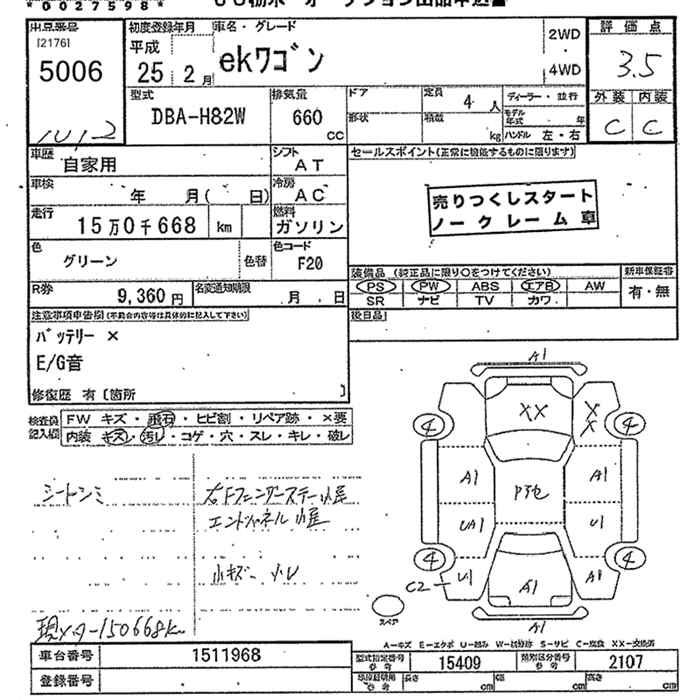 *0027598*
出品番号
[2176]
5006
初度登録年月
平成
25 2月
車名・グレード
ekワゴン
2WD
4WD
評価点
3.5
外装 内装
C C
型式
DBA-H82W
排気量
660
CC
ドア
形状
定員 4 人
積載 kg
ディーラー・並行
モデル年式 年
ハンドル 左・右
車歴
自家用
シフト
AT
車検
年 月( 日)
冷房
AC
走行
15万0千668 km
燃料
ガソリン
色
グリーン
色替
色コード
F20
R券
9,360円
名変通知期限
月 日
セールスポイント(正常に機能するものに限ります)
売りつくしスタート
ノークレーム車
装備品 (純正品に限り○をつけてください)
PS PW ABS エアB AW
SR ナビ TV カワ
新車保証書
有・無
後日品
注意事項申告欄(不具合内容等は具体的に記入して下さい)
バッテリー ×
E/G音
修復歴 有〔箇所 〕
検査員記入欄
FW キズ・飛石・ヒビ割・リペア跡・×要
内装 キズ・汚レ・コゲ・穴・スレ・キレ・破レ
シートシミ
右Fフェンダーステー
エンドパネル
小キズ
現メーター150668km
A1
XX
X
X
4
4
A1
A1
UA1
U1
4
4
C2
U1
A1
A1
A1
スペア
A-キズ E-エクボ U-凹み W-補修跡 S-サビ C-腐食 XX-交換済
車台番号
1511968
登録番号
型式指定番号
参考
15409
類別区分番号
参考
2107
長さ cm
幅 cm
高さ cm